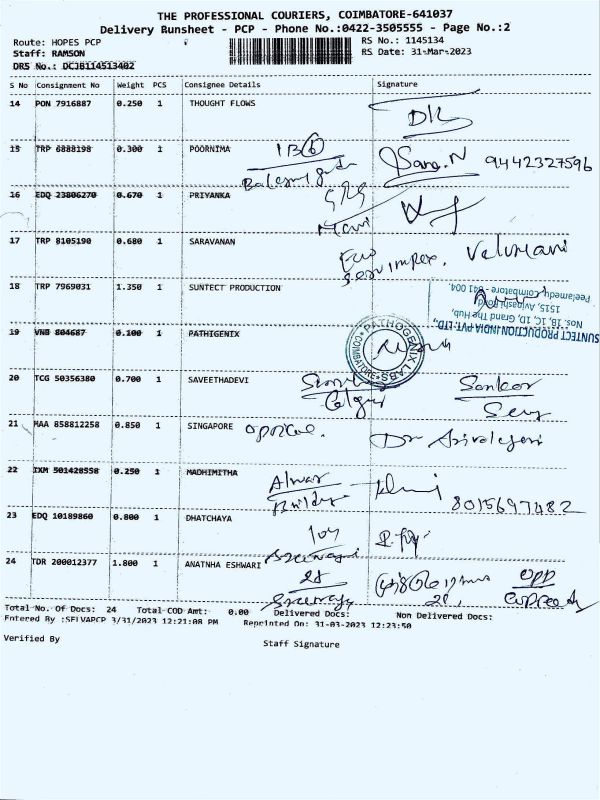 THE PROFESSIONAL COURIERS, COIMBATORE-641037
Delivery Runsheet - PCP - Phone No.:0422-3505555 - Page No.:2
Route: HOPES PCP
RS No.: 1145134
Staff: RAMSON
RS Date: 31-Mar-2023
DRS No.: DCJB114513402
S No Consignment No Weight PCS Consignee Details Signature
14 PON 7916887 0.250 1 THOUGHT FLOWS
15 TRP 6888198 0.300 1 POORNIMA
Sana.N 9442327596
16 EDQ 23806270 0.670 1 PRIYANKA
17 TRP 8105190 0.680 1 SARAVANAN
Velumani
18 TRP 7969031 1.350 1 SUNTECT PRODUCTION
SUNTECT PRODUCTION INDIA PVT. LTD.,
Nos. 1B, 1C, 1D, Grand The Hub,
1515, Avinashi Road,
Peelamedu, Coimbatore - 641 004.
19 VNB 804687 0.100 1 PATHIGENIX
PATHOGENIX LABS COIMBATORE
20 TCG 50356380 0.700 1 SAVEETHADEVI
Sankar
21 MAA 858812258 0.850 1 SINGAPORE
22 IXM 501428558 0.250 1 MADHIMITHA
8015697482
23 EDQ 10189860 0.800 1 DHATCHAYA
24 TDR 200012377 1.800 1 ANATNHA ESHWARI
28
opp
Total No. Of Docs: 24 Total COD Amt: 0.00 Delivered Docs: Non Delivered Docs:
Entered By :SELVAPCP 3/31/2023 12:21:08 PM Reprinted On: 31-03-2023 12:23:50
Verified By
Staff Signature